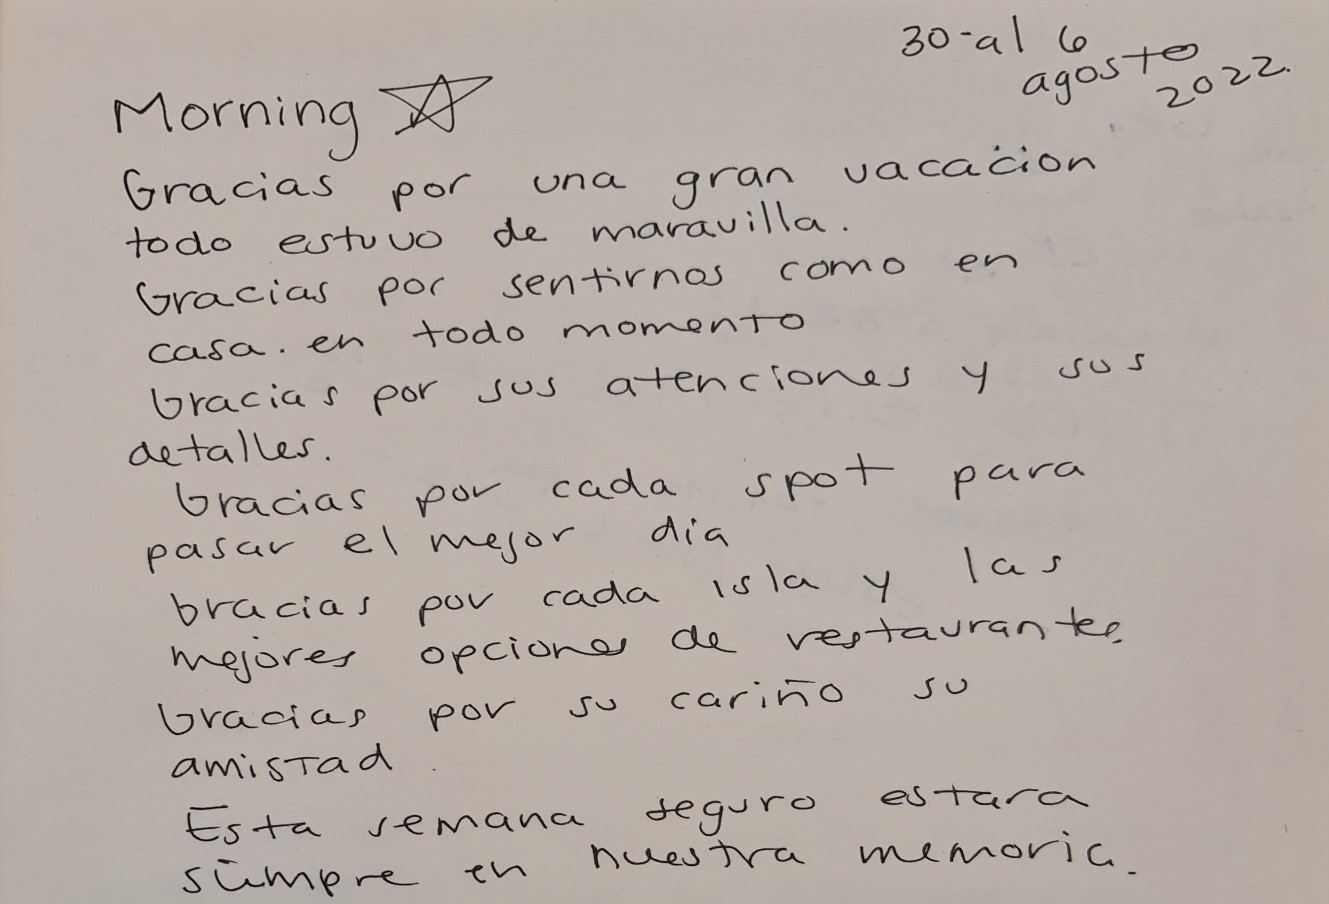 30-al 6
agosto
2022.
Morning ☆
Gracias por una gran vacacion
todo estuvo de maravilla.
Gracias por sentirnos como en
casa. en todo momento
Gracias por sus atenciones y sus
detalles.
Gracias por cada spot para
pasar el mejor dia
Gracias por cada isla y las
mejores opciones de restaurantes.
Gracias por su cariño su
amistad.
Esta semana seguro estara
siempre en nuestra memoria.